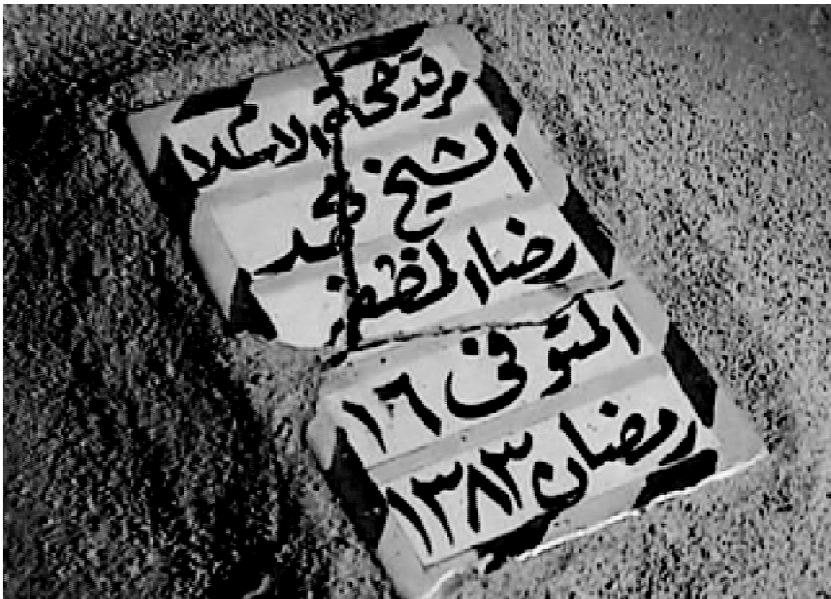 مرقد حجة الاسلام
الشيخ محمد
رضا المظفر
المتوفى ١٦
رمضان ١٣٨٣